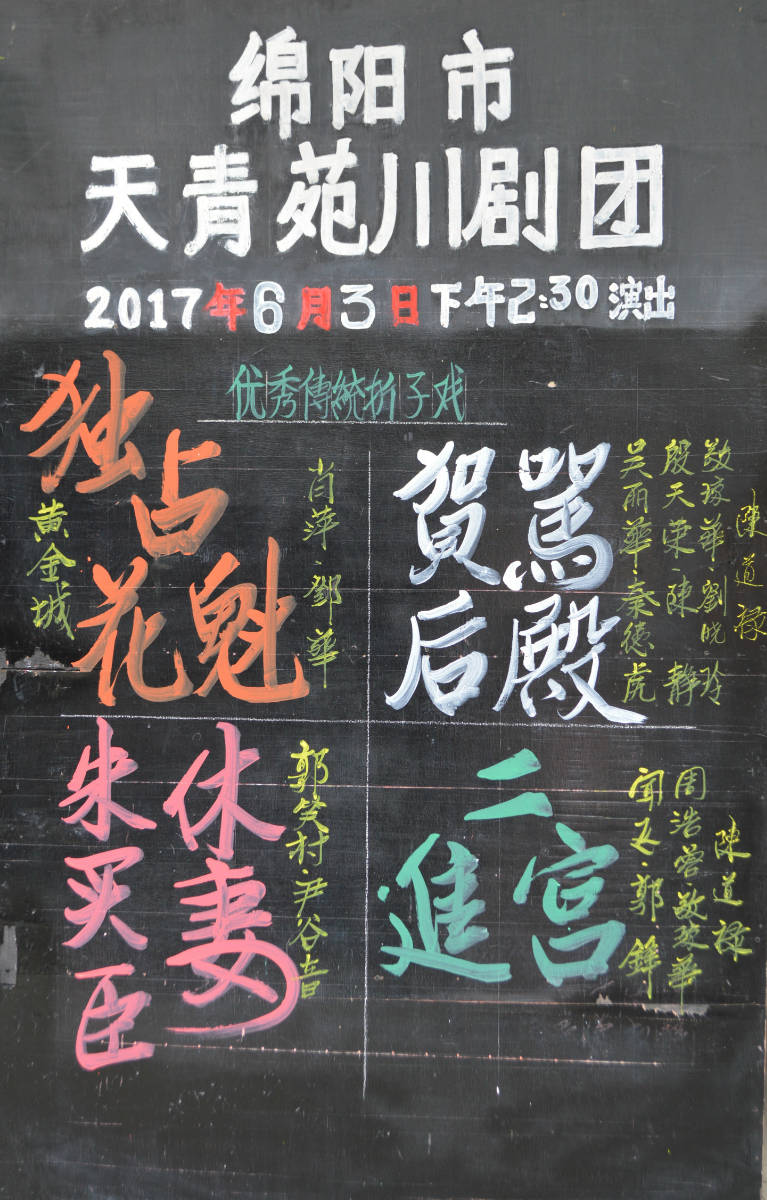 绵阳市
天青苑川剧团
2017年6月3日下午2:30演出
优秀傳統折子戏
独占花魁
黄金城
肖萍·鄧華
賀后
駡殿
吴丽華·秦德虎
殷天荣·陳静
敬琼華·劉晓玲
陳道禄
朱买臣
休妻
郭笑村·尹谷音
二進宫
闻五·郭鋒
周浩蓉敬琼華
陳道禄